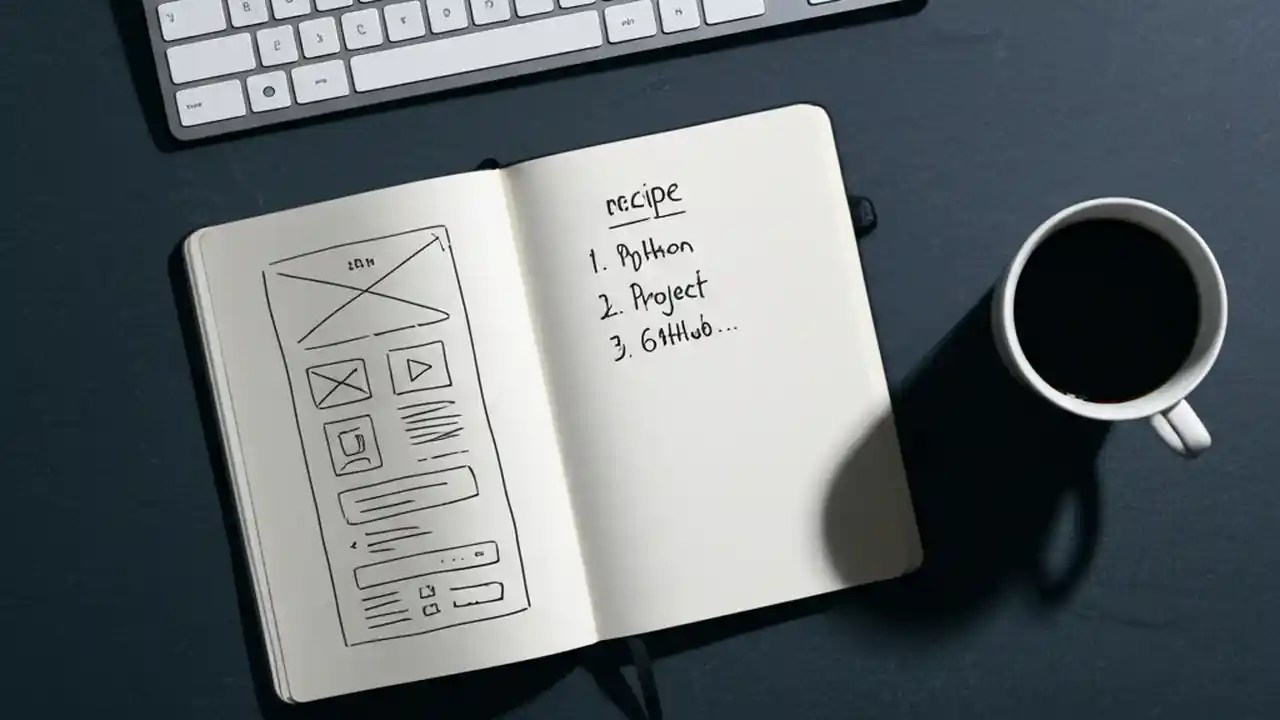 recipe
1. Python
2. Project
3. GitHub...